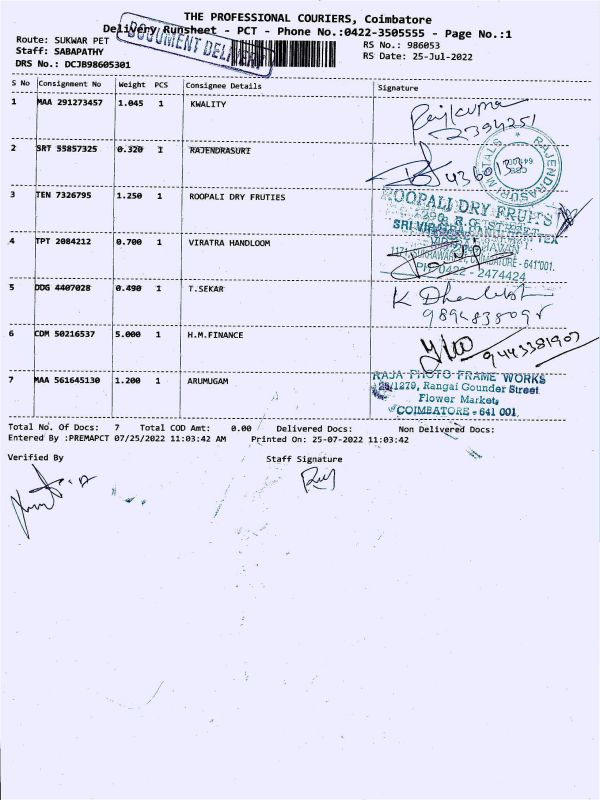 THE PROFESSIONAL COURIERS, Coimbatore
Delivery Runsheet - PCT - Phone No.:0422-3505555 - Page No.:1
DOCUMENT DELIVERY
Route: SUKWAR PET RS No.: 986053
Staff: SABAPATHY RS Date: 25-Jul-2022
DRS No.: DCJB98605301
S No Consignment No Weight PCS Consignee Details Signature
1 MAA 291273457 1.045 1 KWALITY
2 SRT 55857325 0.320 1 RAJENDRASURI
RAJENDRASURI METALS
3 TEN 7326795 1.250 1 ROOPALI DRY FRUTIES
ROOPALI DRY FRUITS
4 TPT 2084212 0.700 1 VIRATRA HANDLOOM
COIMBATORE - 641 001.
PH: 0422 - 2474424
5 DDG 4407028 0.490 1 T.SEKAR
K
6 CDM 50216537 5.000 1 H.M.FINANCE
9443381907
7 MAA 561645130 1.200 1 ARUMUGAM
RAJA PHOTO FRAME WORKS
29/1279, Rangai Gounder Street
Flower Market,
COIMBATORE - 641 001.
Total No. Of Docs: 7 Total COD Amt: 0.00 Delivered Docs: Non Delivered Docs:
Entered By :PREMAPCT 07/25/2022 11:03:42 AM Printed On: 25-07-2022 11:03:42
Verified By Staff Signature